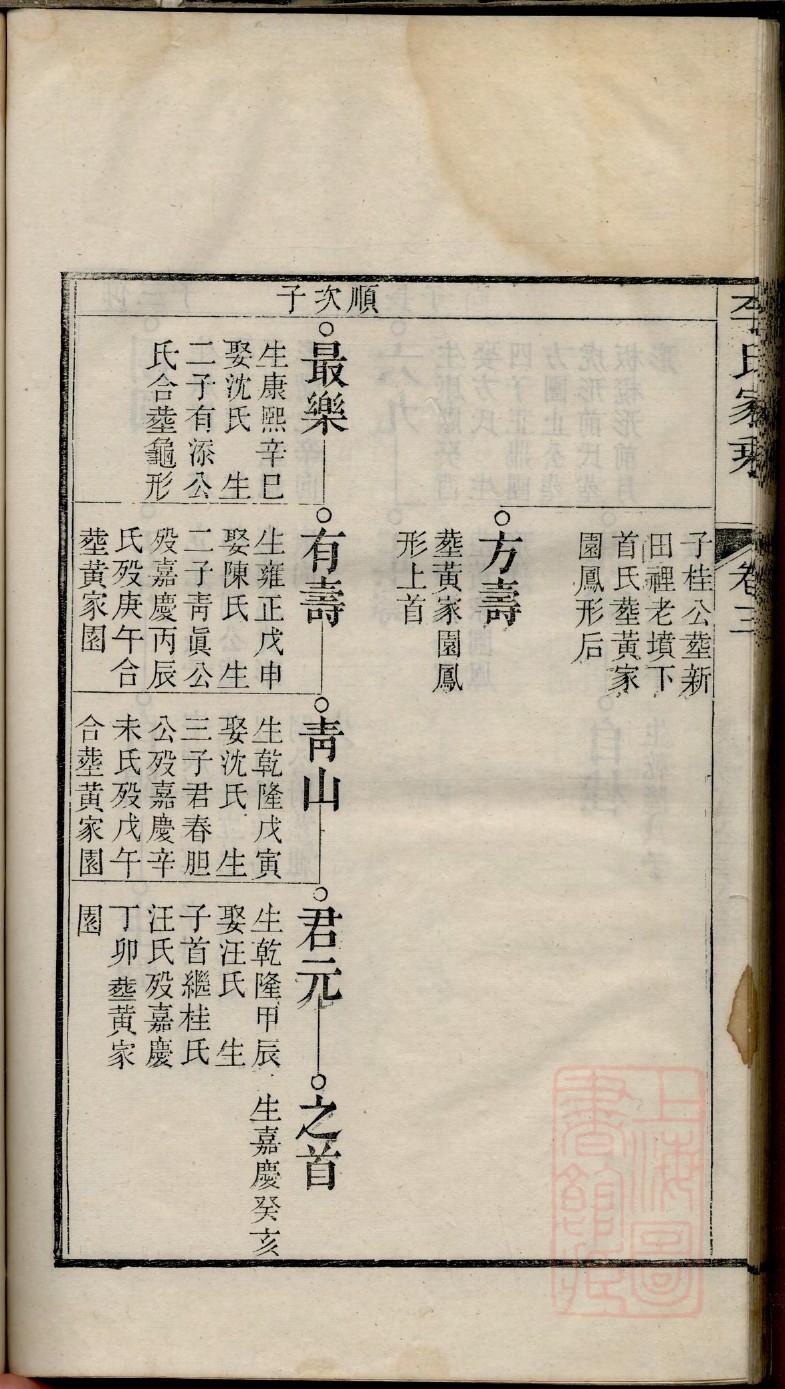 李氏家乘
卷三
子桂公塟新
田裡老墳下
首氏塟黃家
園鳳形后
方壽
塟黃家園鳳
形上首
順次子
最樂
生康熙辛巳
娶沈氏 生
二子有添公
氏合塟龜形
有壽
生雍正戊申
娶陳氏 生
二子靑眞公
歿嘉慶丙辰
氏歿庚午合
塟黃家園
靑山
生乾隆戊寅
娶沈氏 生
三子君春胆
公歿嘉慶辛
未氏歿戊午
合塟黃家園
君元
生乾隆甲辰
娶汪氏 生
子首繼桂氏
汪氏歿嘉慶
丁卯塟黃家
園
之首
生嘉慶癸亥
上海圖
書館藏